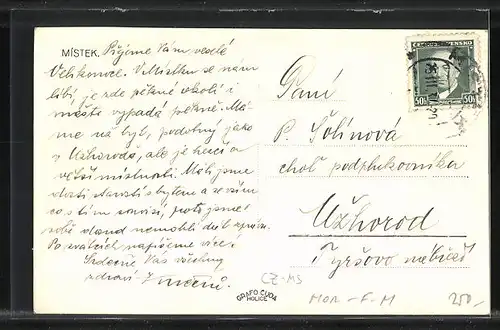 MÍSTEK. Přejeme Vám veselé
Velikonoce. V Místku se nám
líbí je zde pěkné okolí i
město vypadá pěkně. Má-
me na byt, podobný jako
v Užhorodě, ale je hezčí a
větší místnosti. Měli jsme
dosti starostí s bytem a se vším
co s tím souvisí, proto jsme
dlouho nemohli dát zprávu.
Po svátcích napíšeme více.
Srdečně Vás všechny
zdraví
ČESKOSLOVENSKO
50h 50h
Paní
P. Solínová
choť podplukovníka
Užhorod
Tyršovo nábřeží
GRAFO ČUDA
HOLICE
CZ-MS
MOR-F-M
250,-